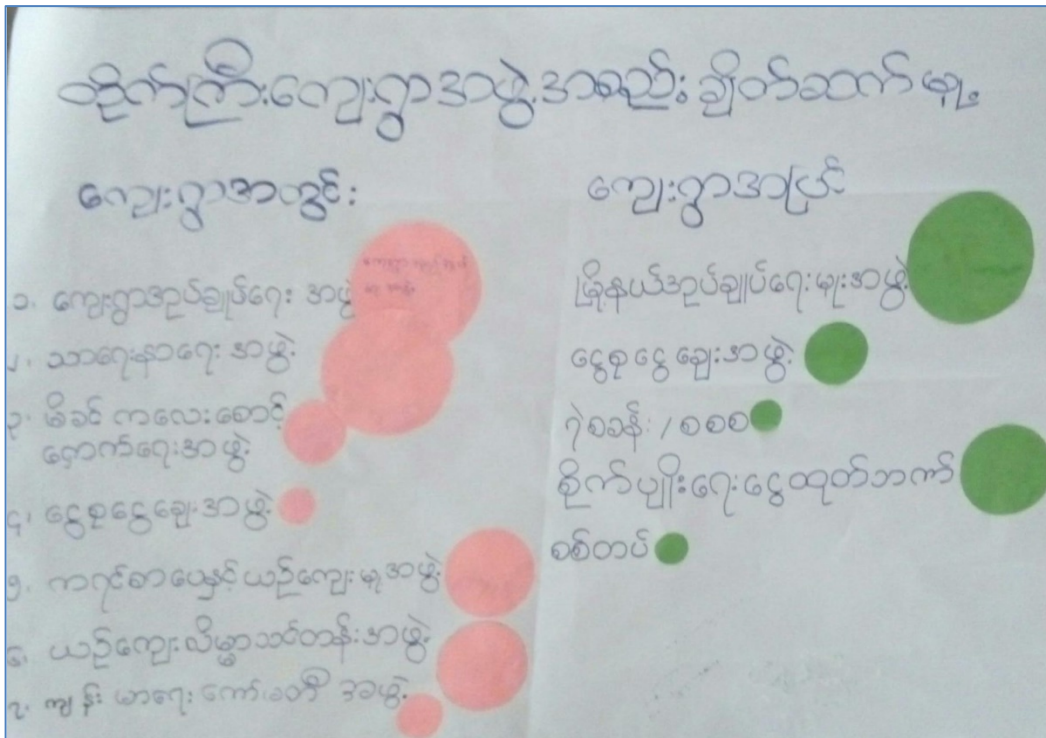 ထိုက်ကြီးကျေးရွာအဖွဲ့အစည်း ချိတ်ဆက်မှု့
ကျေးရွာအတွင်း
၁. ကျေးရွာအုပ်ချုပ်ရေး အဖွဲ့
၂. သာရေးနာရေး အဖွဲ့
၃. မိခင် ကလေးစောင့်
ရှောက်ရေးအဖွဲ့
၄. ငွေစုငွေချေးအဖွဲ့
၅. ကရင်စာပေနှင့် ယဉ်ကျေးမှုအဖွဲ့
၆. ယဉ်ကျေးလိမ္မာသင်တန်းအဖွဲ့
၇. ကျန်းမာရေး ကော်မတီ အဖွဲ့
ကျေးရွာအပြင်
မြို့နယ်အုပ်ချုပ်ရေးမှုးအဖွဲ့
ငွေစုငွေချေးအဖွဲ့
ရဲစခန်း / စစစ
စိုက်ပျိုးရေးငွေထုတ်ဘဏ်
စစ်တပ်